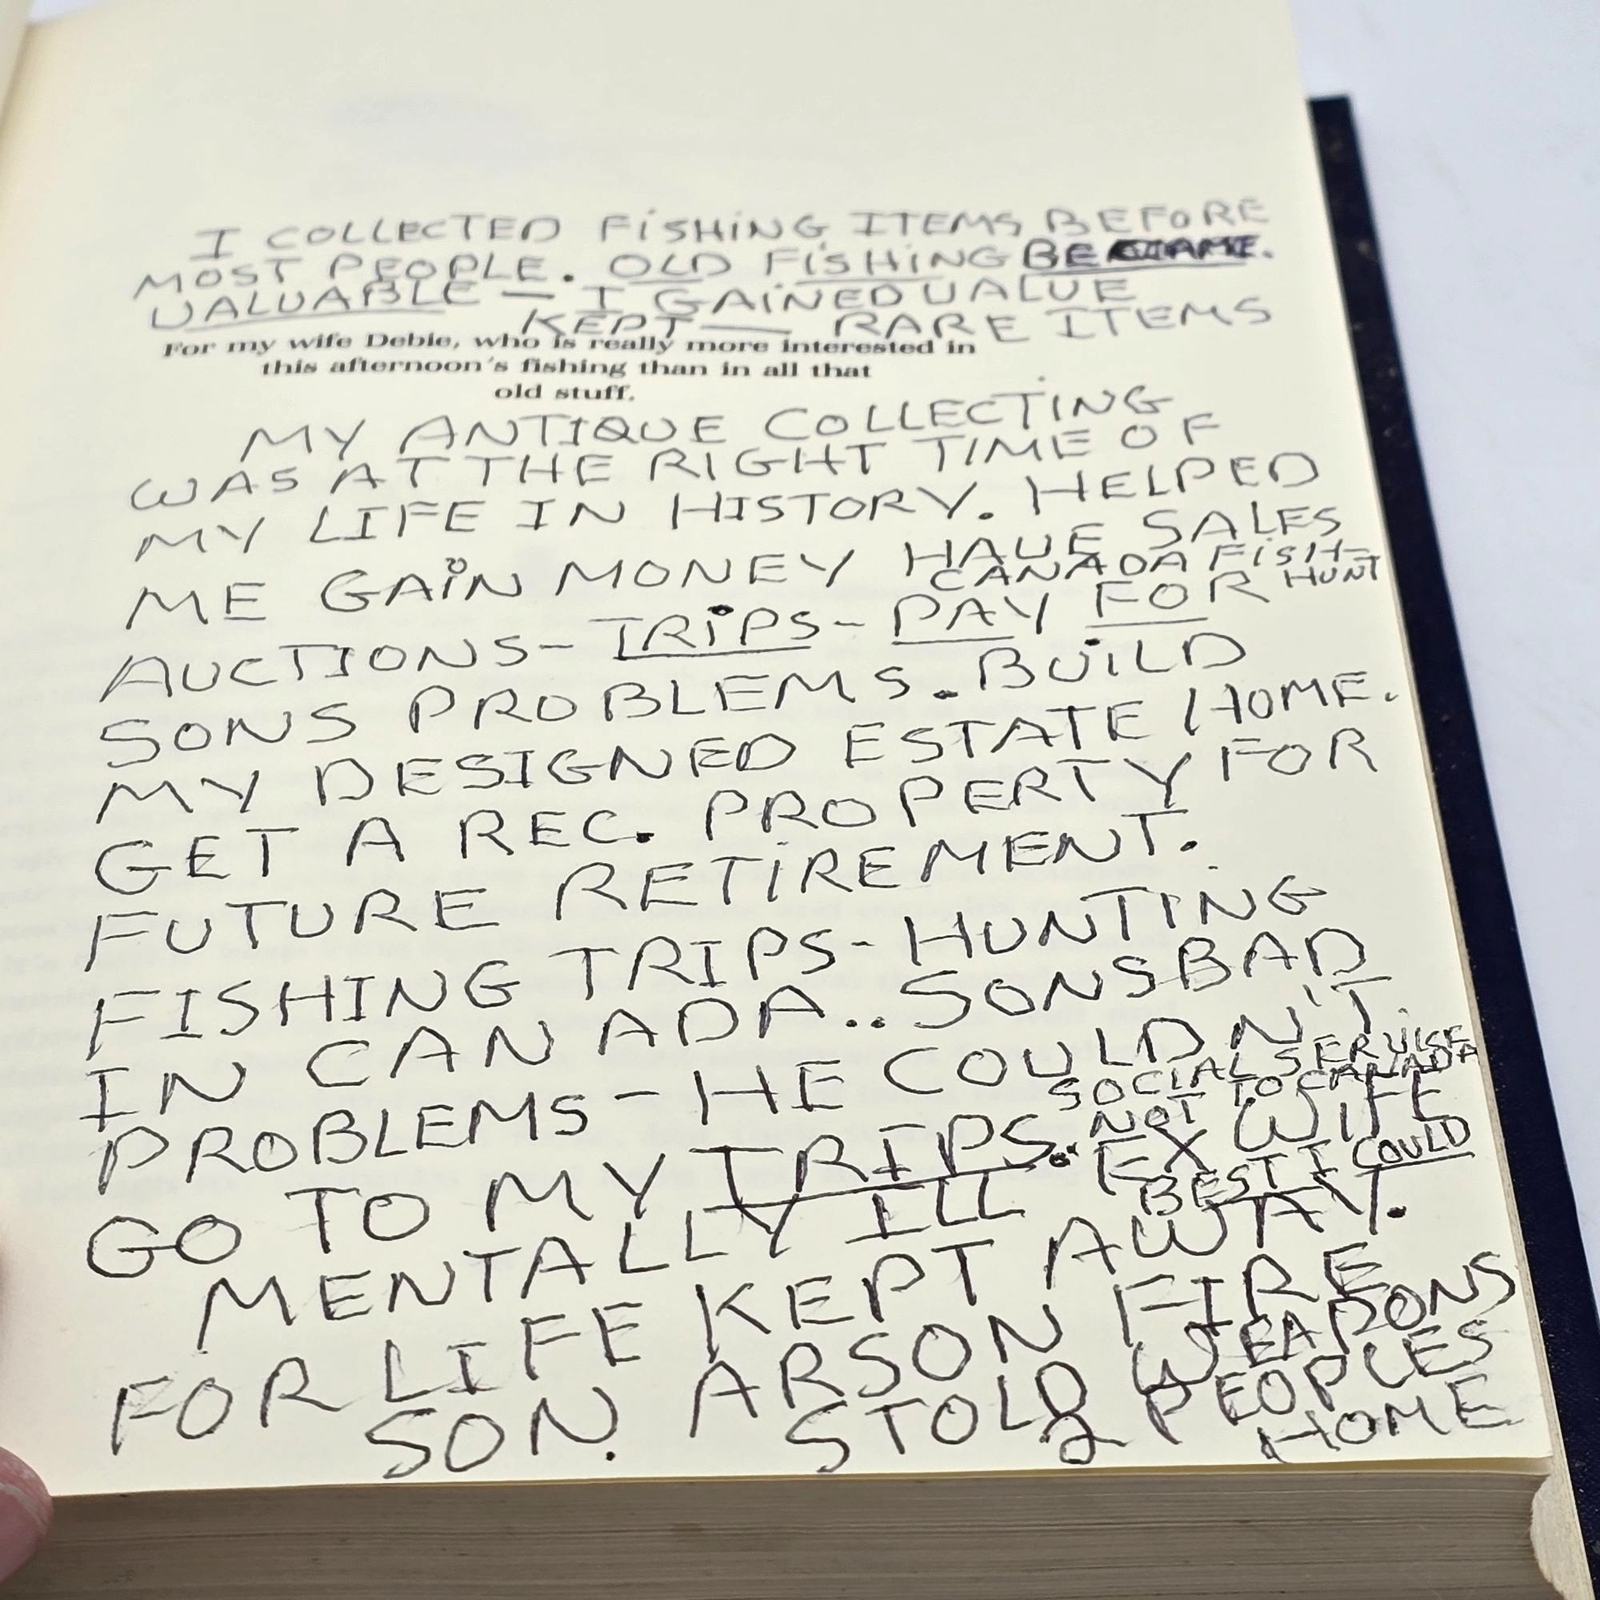 I COLLECTED FISHING ITEMS BEFORE
MOST PEOPLE. OLD FISHING BECAME.
VALUABLE — I GAINED VALUE
KEPT — RARE ITEMS
For my wife Debie, who is really more interested in
this afternoon's fishing than in all that
old stuff.
MY ANTIQUE COLLECTING
WAS AT THE RIGHT TIME OF
MY LIFE IN HISTORY. HELPED
ME GAIN MONEY HAVE SALES
CANADA FISH-
HUNT
AUCTIONS- TRIPS- PAY FOR
SONS PROBLEMS. BUILD
MY DESIGNED ESTATE / HOME.
GET A REC. PROPERTY FOR
FUTURE RETIREMENT.
FISHING TRIPS- HUNTING
IN CANADA.. SONS BAD
PROBLEMS- HE COULDN'T.
SOCIAL SERVISE
NOT TO CANADA
GO TO MY TRIPS. EX WIFE
BEST I COULD
MENTALLY ILL
FOR LIFE KEPT AWAY.
SON. ARSON FIRE
STOLD WEAPONS
2 PEOPLES
HOME